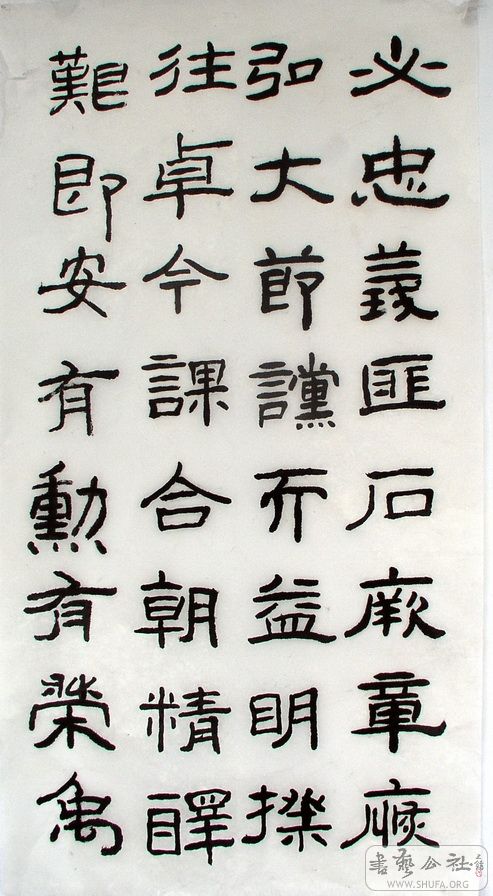 必忠義匪石厥章恢
弘大節讜而益明揆
往卓今課合朝精醳
艱即安有勳有榮禹
書藝公社
WWW.SHUFA.ORG